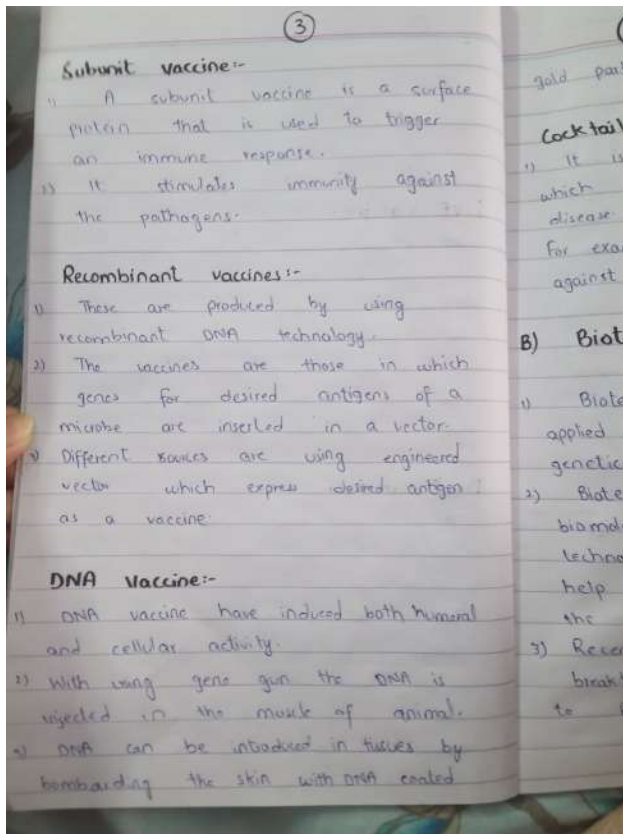 3
Subunit vaccine:-
1) A subunit vaccine is a surface
protein that is used to trigger
an immune response.
2) It stimulates immunity against
the pathogens.
Recombinant vaccines:-
1) These are produced by using
recombinant DNA technology.
2) The vaccines are those in which
genes for desired antigens of a
microbe are inserted in a vector.
3) Different sources are using engineered
vector which express desired antigen
as a vaccine.
DNA Vaccine:-
1) DNA vaccine have induced both humoral
and cellular activity.
2) With using gene gun the DNA is
injected in the muscle of animal.
3) DNA can be intoduced in tissues by
bombarding the skin with DNA coated
gold part
Cocktail
1) It is
which
disease.
For exa
against
B) Biot
1) Biote
applied
genetic
2) Biote
biomol
techno
help
the
3) Recen
break
to